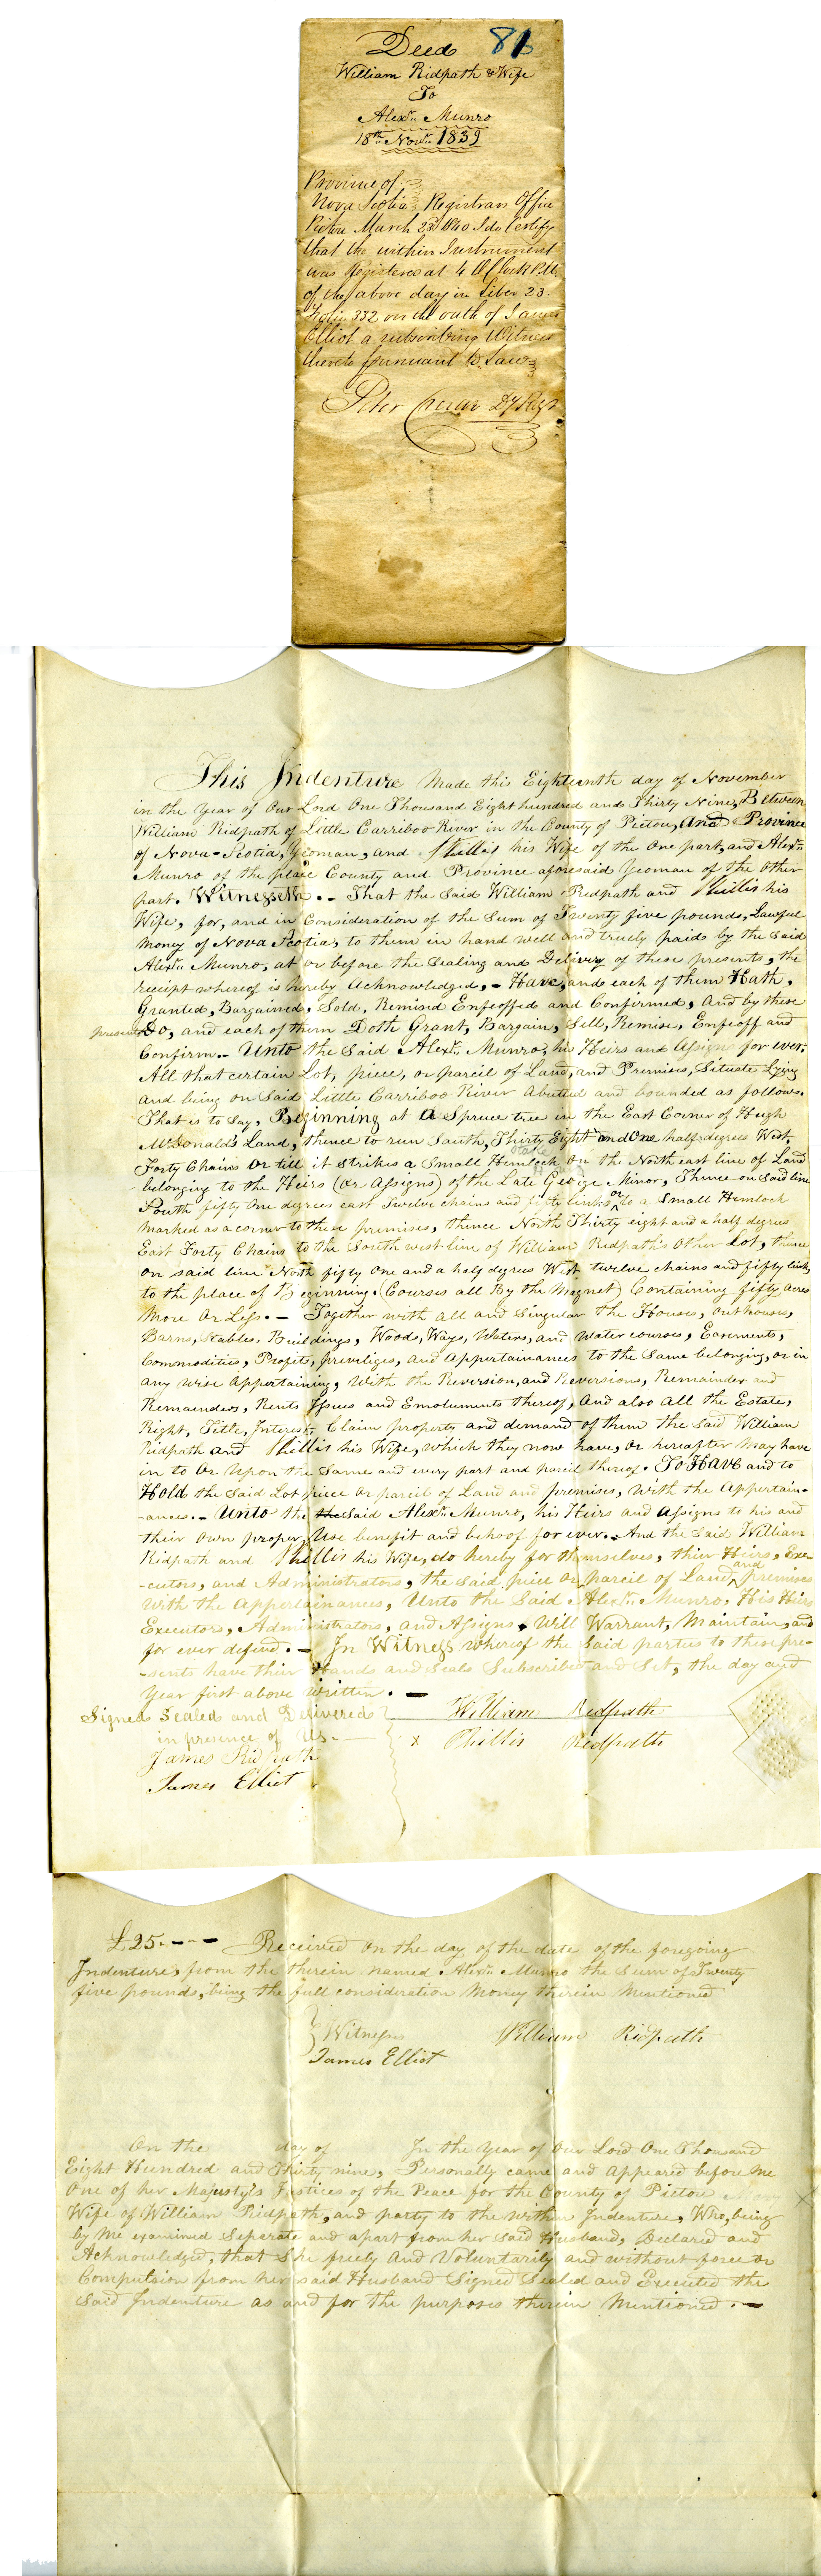 Deed 81
William Ridpath & Wife
To
Alexr. Munro
18th Novr. 1839
Province of
Nova Scotia Registrars Office
Pictou March 23d 1840 I do Certify
that the within Instrument
was Registered at 4 OClock P.M.
of the above day in Liber 23.
Folio 332 on the oath of James
Elliot a subscribing Witness
thereto pursuant to Law
Peter Dy Regr
This Indenture Made this Eighteenth day of November
in the Year of Our Lord One Thousand Eight hundred and Thirty Nine, Between
William Ridpath of Little Carriboo River in the County of Pictou, And Province
of Nova-Scotia, Yeoman, and Phillis his Wife of the One part, and Alexr.
Munro of the place County and Province aforesaid Yeoman of the Other
part. Witnesseth. - That the Said William Ridpath and Phillis his
Wife, for, and in Consideration of the Sum of Twenty five pounds, Lawful
Money of Nova Scotia, to them in hand well and truely paid by the Said
Alexr. Munro, at or before the Sealing and Delivery of these presents, the
receipt whereof is hereby Acknowledged, - Have, and each of them Hath,
Granted, Bargained, Sold, Remised Enfeoffed and Confirmed, And by these
presents Do, and each of them Doth Grant, Bargain, Sell, Remise, Enfeoff and
Confirm. - Unto the Said Alexr. Munro, his Heirs and Assigns for ever,
All that certain Lot, piece, or parcil of Land, and Premises, Situate Lying
and being on Said Little Carriboo River Abutted and bounded as follows.
That is to Say, Beginning at A Spruce tree in the East Corner of Hugh
McDonald's Land, thence to run South, Thirty Eight and One half degrees West,
Stake
Forty Chains Or till it Strikes a Small Hemlock On the North east line of Land
belonging to the Heirs (Or Assigns) of the Late George Minor, Thence on Said line
South fifty One degrees east Twelve chains and fifty links or to a Small Hemlock
Marked as a corner to these premises, thence North Thirty eight and a half degrees
East Forty Chains to the South west line of William Ridpath's Other Lot, thence
On said line North fifty One and a half degrees West twelve chains and fifty links
to the place of Beginning. (Courses all By the Magnet) Containing fifty Acres
More Or Less. - Together with all and Singular the Houses, Outhouses,
Barns, Stables, Buildings, Woods, Ways, Waters, and Water courses, Easements,
Commodities, Profits, priviliges, and Appertainances to the Same belonging, or in
any wise Appertaining, With the Reversion, and Reversions, Remainder and
Remainders, Rents Issues and Emoluments thereof, And also All the Estate,
Right, Title, Interest, Claim property and demand of them the Said William
Ridpath and Phillis his Wife, which they now have, or hereafter May have
in to Or Upon the Same and every part and parcil thereof. To Have and to
Hold the Said Lot piece or parcil of Land and premises, With the Appertain-
-ances. - Unto the the Said Alexr. Munro, his Heirs and Assigns to his and
their Own proper Use benefit and behoof for ever. - And the Said William
Ridpath and Phillis his Wife, do hereby for themselves, thier Heirs, Exe-
-cutors, and Administrators, the Said piece Or parcil of Land, and premises
With the Appertainances, Unto the Said Alexr. Munro, His Heirs
Executors, Administrators, and Assigns, Will Warrant, Maintain, and
for ever defend. - In Witness whereof the Said parties to these pre-
-sents have thier Hands and Seals Subscribed and Set, the day and
Year first above written. -
Signed Sealed and Delivered William Ridpath
in presence of Us. - x Phillis Ridpath
James Ridpath
James Elliot
£25. - - - Received On the day of the date of the foregoing
Indenture, from the therein named Alexr. Munro the Sum of Twenty
five pounds, being the full consideration Money therein Mentioned
Witness William Ridpath
James Elliot
On the day of In the Year of Our Lord One Thousand
Eight Hundred and Thirty nine, Personally came and Appeared before Me
One of her Majesty's Justices of the Peace for the County of Pictou Mary
Wife of William Ridpath, and party to the within Indenture, Who, being
by Me examined Seperate and apart from her Said Husband, Declared and
Acknowledged, that She freely And Voluntarily and without force or
Compulsion from her said Husband Signed Sealed and Executed the
Said Indenture as and for the purposes therein Mentioned. -